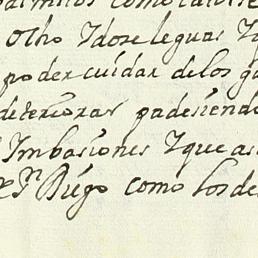 como
Ocho Y dose leguas Y
poder cuidar de los ga
deteriorar padesiendo
Imbasiones Y que as
Sn Diego como los de